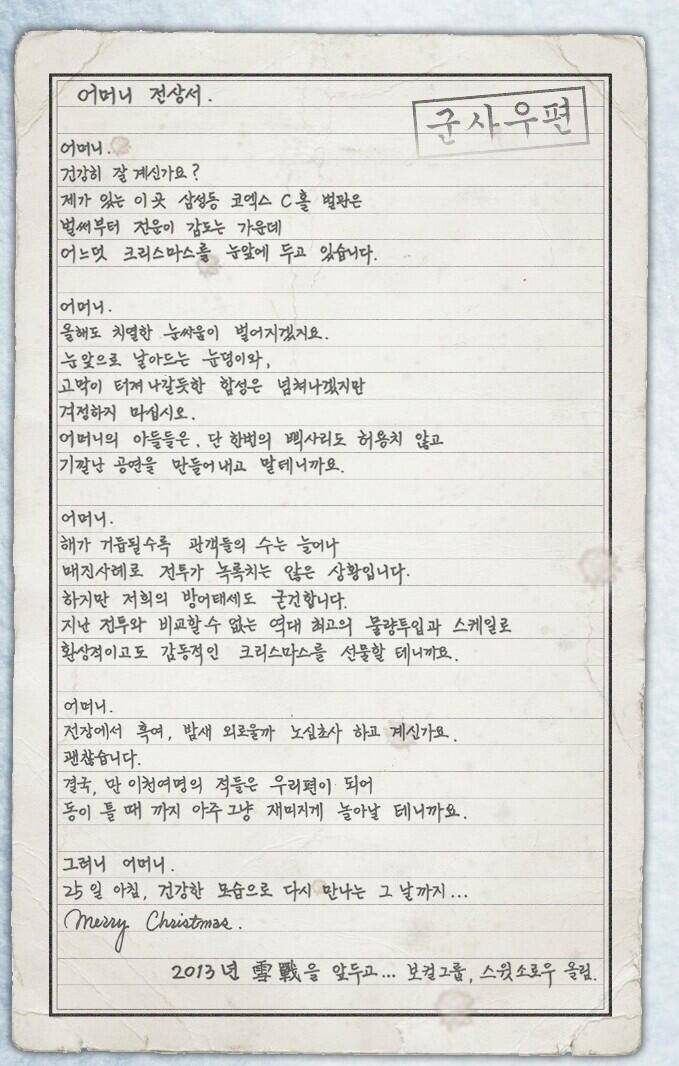 어머니 전상서.
군사우편
어머니.
건강히 잘 계신가요?
제가 있는 이 곳 삼성동 코엑스 C홀 벌판은
벌써부터 전운이 감도는 가운데
어느덧 크리스마스를 눈앞에 두고 있습니다.
어머니.
올해도 치열한 눈싸움이 벌어지겠지요.
눈앞으로 날아드는 눈덩이와,
고막이 터져 나갈듯한 함성은 넘쳐나겠지만
걱정하지 마십시오.
어머니의 아들들은, 단 한번의 삑사리도 허용치 않고
기깔난 공연을 만들어내고 말테니까요.
어머니.
해가 거듭될수록 관객들의 수는 늘어나
매진사례로 전투가 녹록치는 않은 상황입니다.
하지만 저희의 방어태세도 굳건합니다.
지난 전투와 비교할 수 없는 역대 최고의 물량투입과 스케일로
환상적이고도 감동적인 크리스마스를 선물할 테니까요.
어머니.
전장에서 혹여, 밤새 외로울까 노심초사 하고 계신가요.
괜찮습니다.
결국, 만 이천여명의 적들은 우리편이 되어
동이 틀 때 까지 아주 그냥 재미지게 놀아날 테니까요.
그러니 어머니.
25일 아침, 건강한 모습으로 다시 만나는 그 날까지...
Merry Christmas.
2013년 雪戰을 앞두고... 보컬그룹, 스윗소로우 올림.